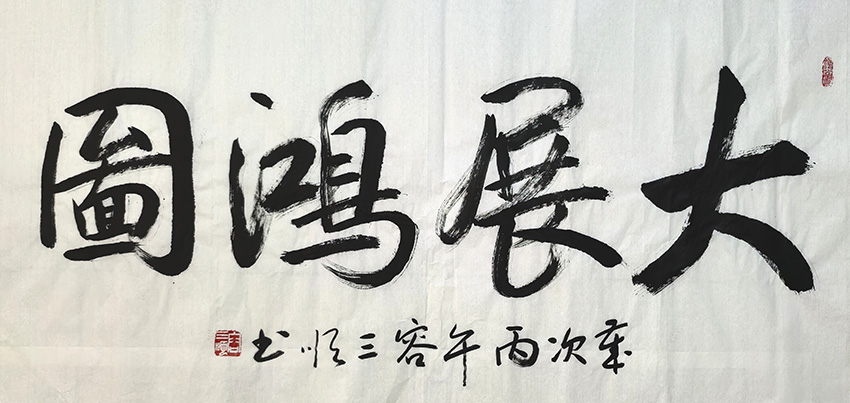 大展鴻圖
歲次丙午容三順书